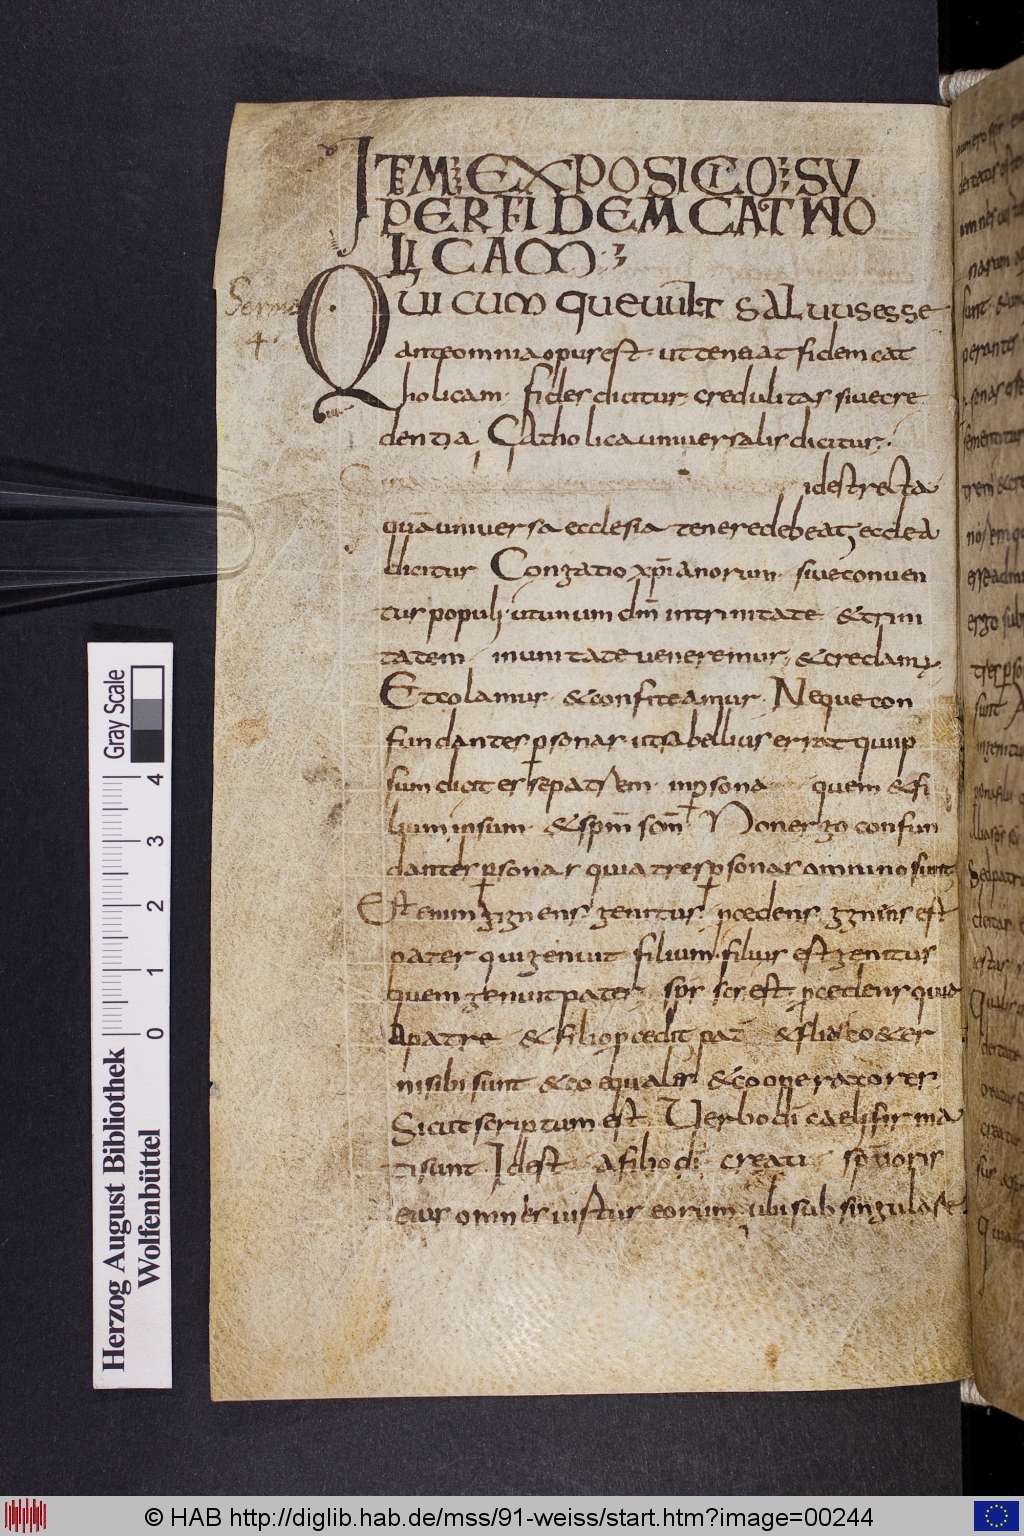 ITEM EXPOSICIO SU
PER FIDEM CATHO
LICAM
Sermo
4.
QUICUMQUE VULT SALUUS ESSE
ante omnia opus est ut teneat fidem cat
holicam. fides dicitur credulitas siue cre
dentia. Catholica uniuersalis dicitur.
id est recta
quā uniuersa ecclesia tenere debeat
dicitur Congatio xp̄ianorum siue conuen
tus populi. ut unum dm̄ in trinitate & trini
tatem in unitate ueneremur, & credamus
Et colamus & confiteamur. Neque con
fundantes psonas ut sabellius errat qui ip
sum dicit esse patrem in psona quem & fi
lium ipsum & spm̄ scm̄ Non ergo confun
dantes psonas quia tres psonas omnino sunt
Est enim gignens genitus pcedens gignens est
pater qui genuit filium. filius est genitus
quem genuit pater. sps scs est pcedens quia
A patre & filio pcedit pat & coeter
ni sibi sunt & co equales & cooperatores
Sicut scriptum est Uerbo dī caeli firma
ti sunt Id est a filio dī creati sp̄u oris
eius omnes uirtus eorum ubi sub singula
Gray Scale
4 3 2 1 0
Herzog August Bibliothek
Wolfenbüttel
© HAB http://diglib.hab.de/mss/91-weiss/start.htm?image=00244